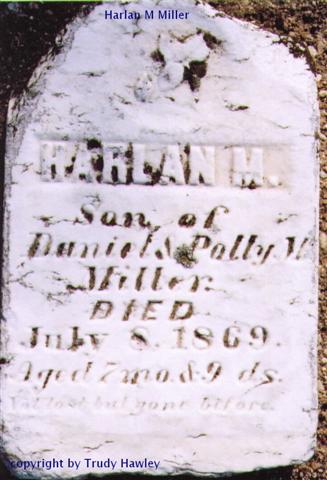 Harlan M Miller
HARLAN M.
Son of
Daniel & Polly M
Miller.
DIED
July 8. 1869.
Aged 7 mo. & 9 ds.
Not lost but gone before.
copyright by Trudy Hawley